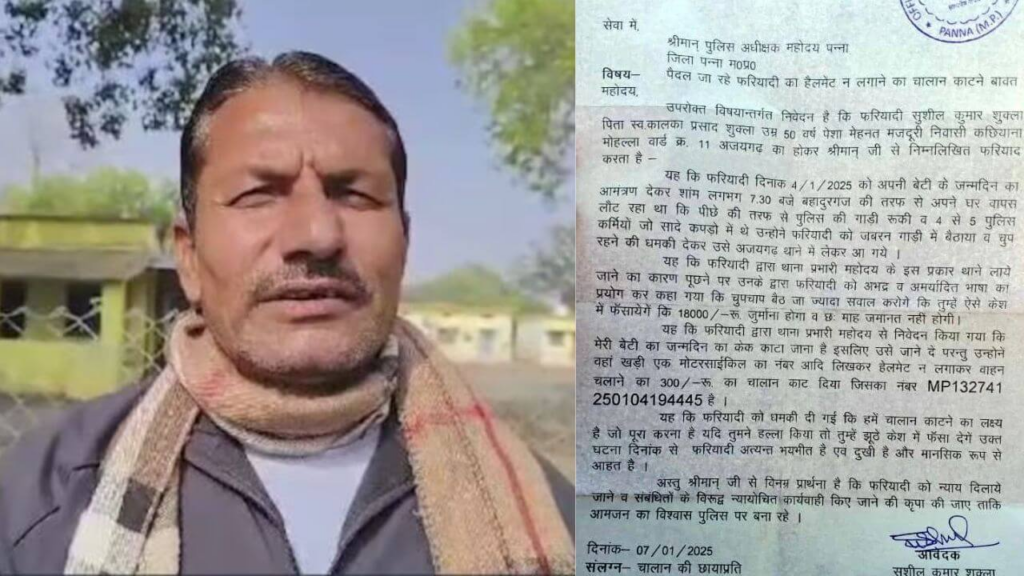 PANNA (M.P.)
सेवा में,
श्रीमान् पुलिस अधीक्षक महोदय पन्ना
जिला पन्ना म०प्र०
विषय– पैदल जा रहे फरियादी का हैलमेट न लगाने का चालान काटने बावत
महोदय,
उपरोक्त विषयान्तर्गत निवेदन है कि फरियादी सुशील कुमार शुक्ला
पिता स्व.कालका प्रसाद शुक्ला उम्र 50 वर्ष पेशा मेहनत मजदूरी निवासी कछियाना
मोहल्ला वार्ड क्र. 11 अजयगढ़ का होकर श्रीमान् जी से निम्नलिखित फरियाद
करता है –
यह कि फरियादी दिनाक 4/1/2025 को अपनी बेटी के जन्मदिन का
आमत्रण देकर शांम लगभग 7.30 बजे बहादुरगंज की तरफ से अपने घर वापस
लौट रहा था कि पीछे की तरफ से पुलिस की गाड़ी रूकी व 4 से 5 पुलिस
कर्मियो जो सादे कपड़ो में थे उन्होने फरियादी को जबरन गाड़ी में बैठाया व चुप
रहने की धमकी देकर उसे अजयगढ़ थाने में लेकर आ गये ।
यह कि फरियादी द्वारा थाना प्रभारी महोदय के इस प्रकार थाने लाये
जाने का कारण पूछने पर उनके द्वारा फरियादी को अभद्र व अमर्यादित भाषा का
प्रयोग कर कहा गया कि चुपचाप बैठ जा ज्यादा सवाल करोगे कि तुम्हें ऐसे केश
में फॅसायेगें कि 18000/–रू. जुर्माना होगा व छः माह जमानत नही होगी।
यह कि फरियादी द्वारा थाना प्रभारी महोदय से निवेदन किया गया कि
मेरी बेटी का जन्मदिन का केक काटा जाना है इसलिए उसे जाने दे परन्तु उन्होने
वहां खड़ी एक मोटरसाईकिल का नंबर आदि लिखकर हैलमेट न लगाकर वाहन
चलाने का 300/–रू. का चालान काट दिया जिसका नंबर MP132741
250104194445 है ।
यह कि फरियादी को धमकी दी गई कि हमें चालान काटने का लक्ष्य
है जो पूरा करना है यदि तुमने हल्ला किया तो तुम्हे झूठे केश में फॅसा देगें उक्त
घटना दिनाक से फरियादी अत्यन्त भयभीत है एवं दुखी है और मानसिक रूप से
आहत है ।
अस्तु श्रीमान् जी से विनम्र प्रार्थना है कि फरियादी को न्याय दिलाये
जाने व संबधितों के विरूद्व न्यायोचित कार्यवाही किए जाने की कृपा की जाए ताकि
आमजन का विश्वास पुलिस पर बना रहे ।
दिनाक– 07/01/2025
आवेदक
संलग्न– चालान की छायाप्रति
सुशील कुमार शुक्ला